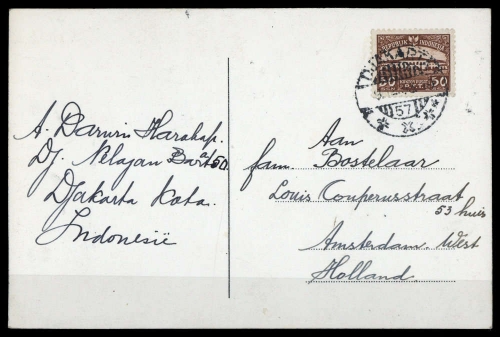 A. Darwin Harahap.
Dj. Nelajan Barat a/50.
Djakarta Kota.
Indonesië
REPUBLIK INDONESIA
50 50
57
Aan
fam. Bostelaar
Louis Couperusstraat
53 huis
Amsterdam. West
Holland.